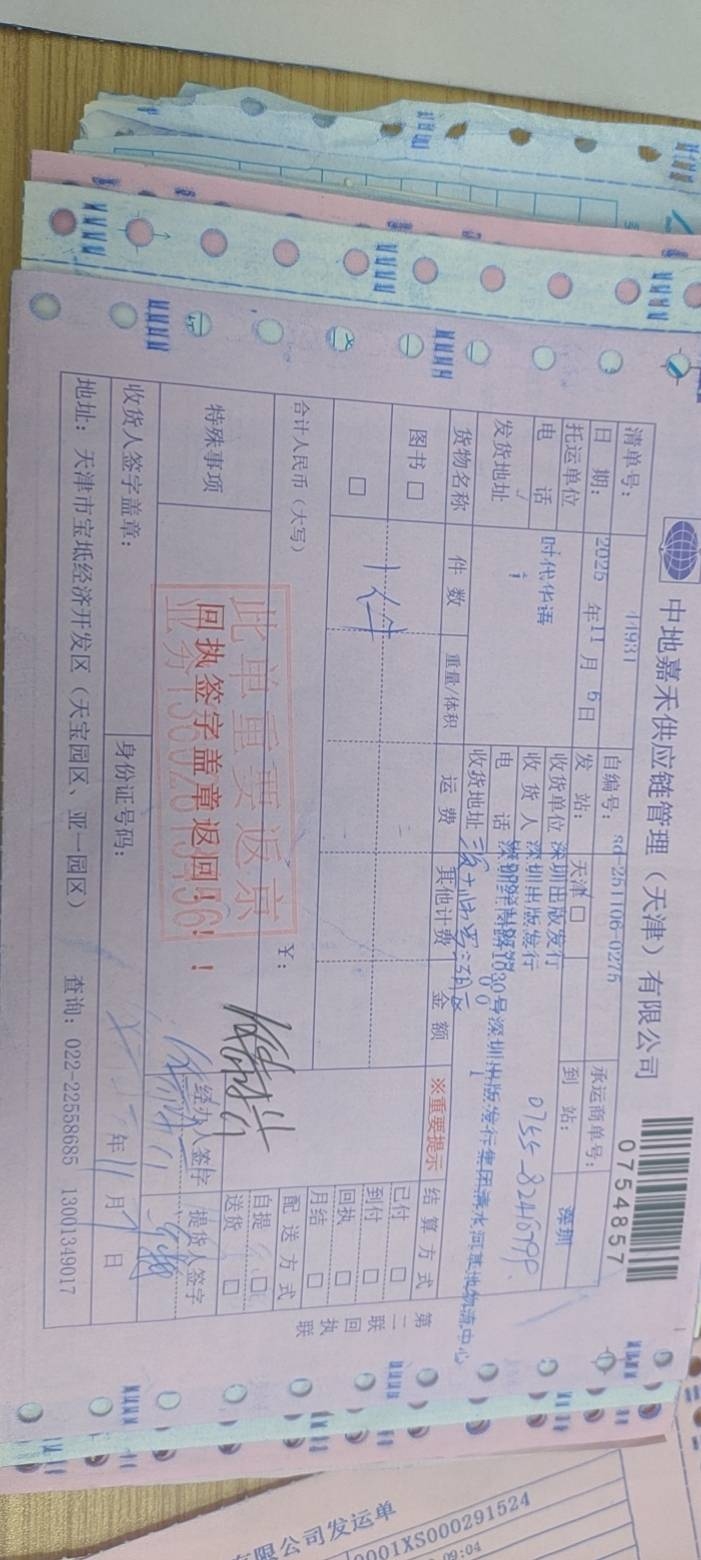 中地嘉禾供应链管理（天津）有限公司
0754857
清单号： 44931 自编号： sd-251106-0275 承运商单号：
日 期： 2025 年 11 月 6 日 发 站： 天津 □ 到 站： 深圳
托运单位 时代华语 收货单位 深圳出版发行
电 话 收 货 人 深圳出版发行
发货地址 电 话 0755-8246799.
收货地址 1030号深圳出版发行集团清水河基地物流中心
货物名称 件 数 重量/体积 运 费 其他计费 金 额 ※重要提示 结 算 方 式
图书 □ 已付 □
□ 十件 到付 □
回执 □
月结 □
合计人民币（大写） ￥： 配 送 方 式
自提 □
送货 □
特殊事项 回执签字盖章返回！！！
此单重要返京
经办人签字 提货人签字
收货人签字盖章： 身份证号码： 年 11 月 7 日
地址：天津市宝坻经济开发区（天宝园区、亚一园区） 查询：022-22558685 13001349017
第二联 回执联
有限公司发运单
0001XS000291524
09:04